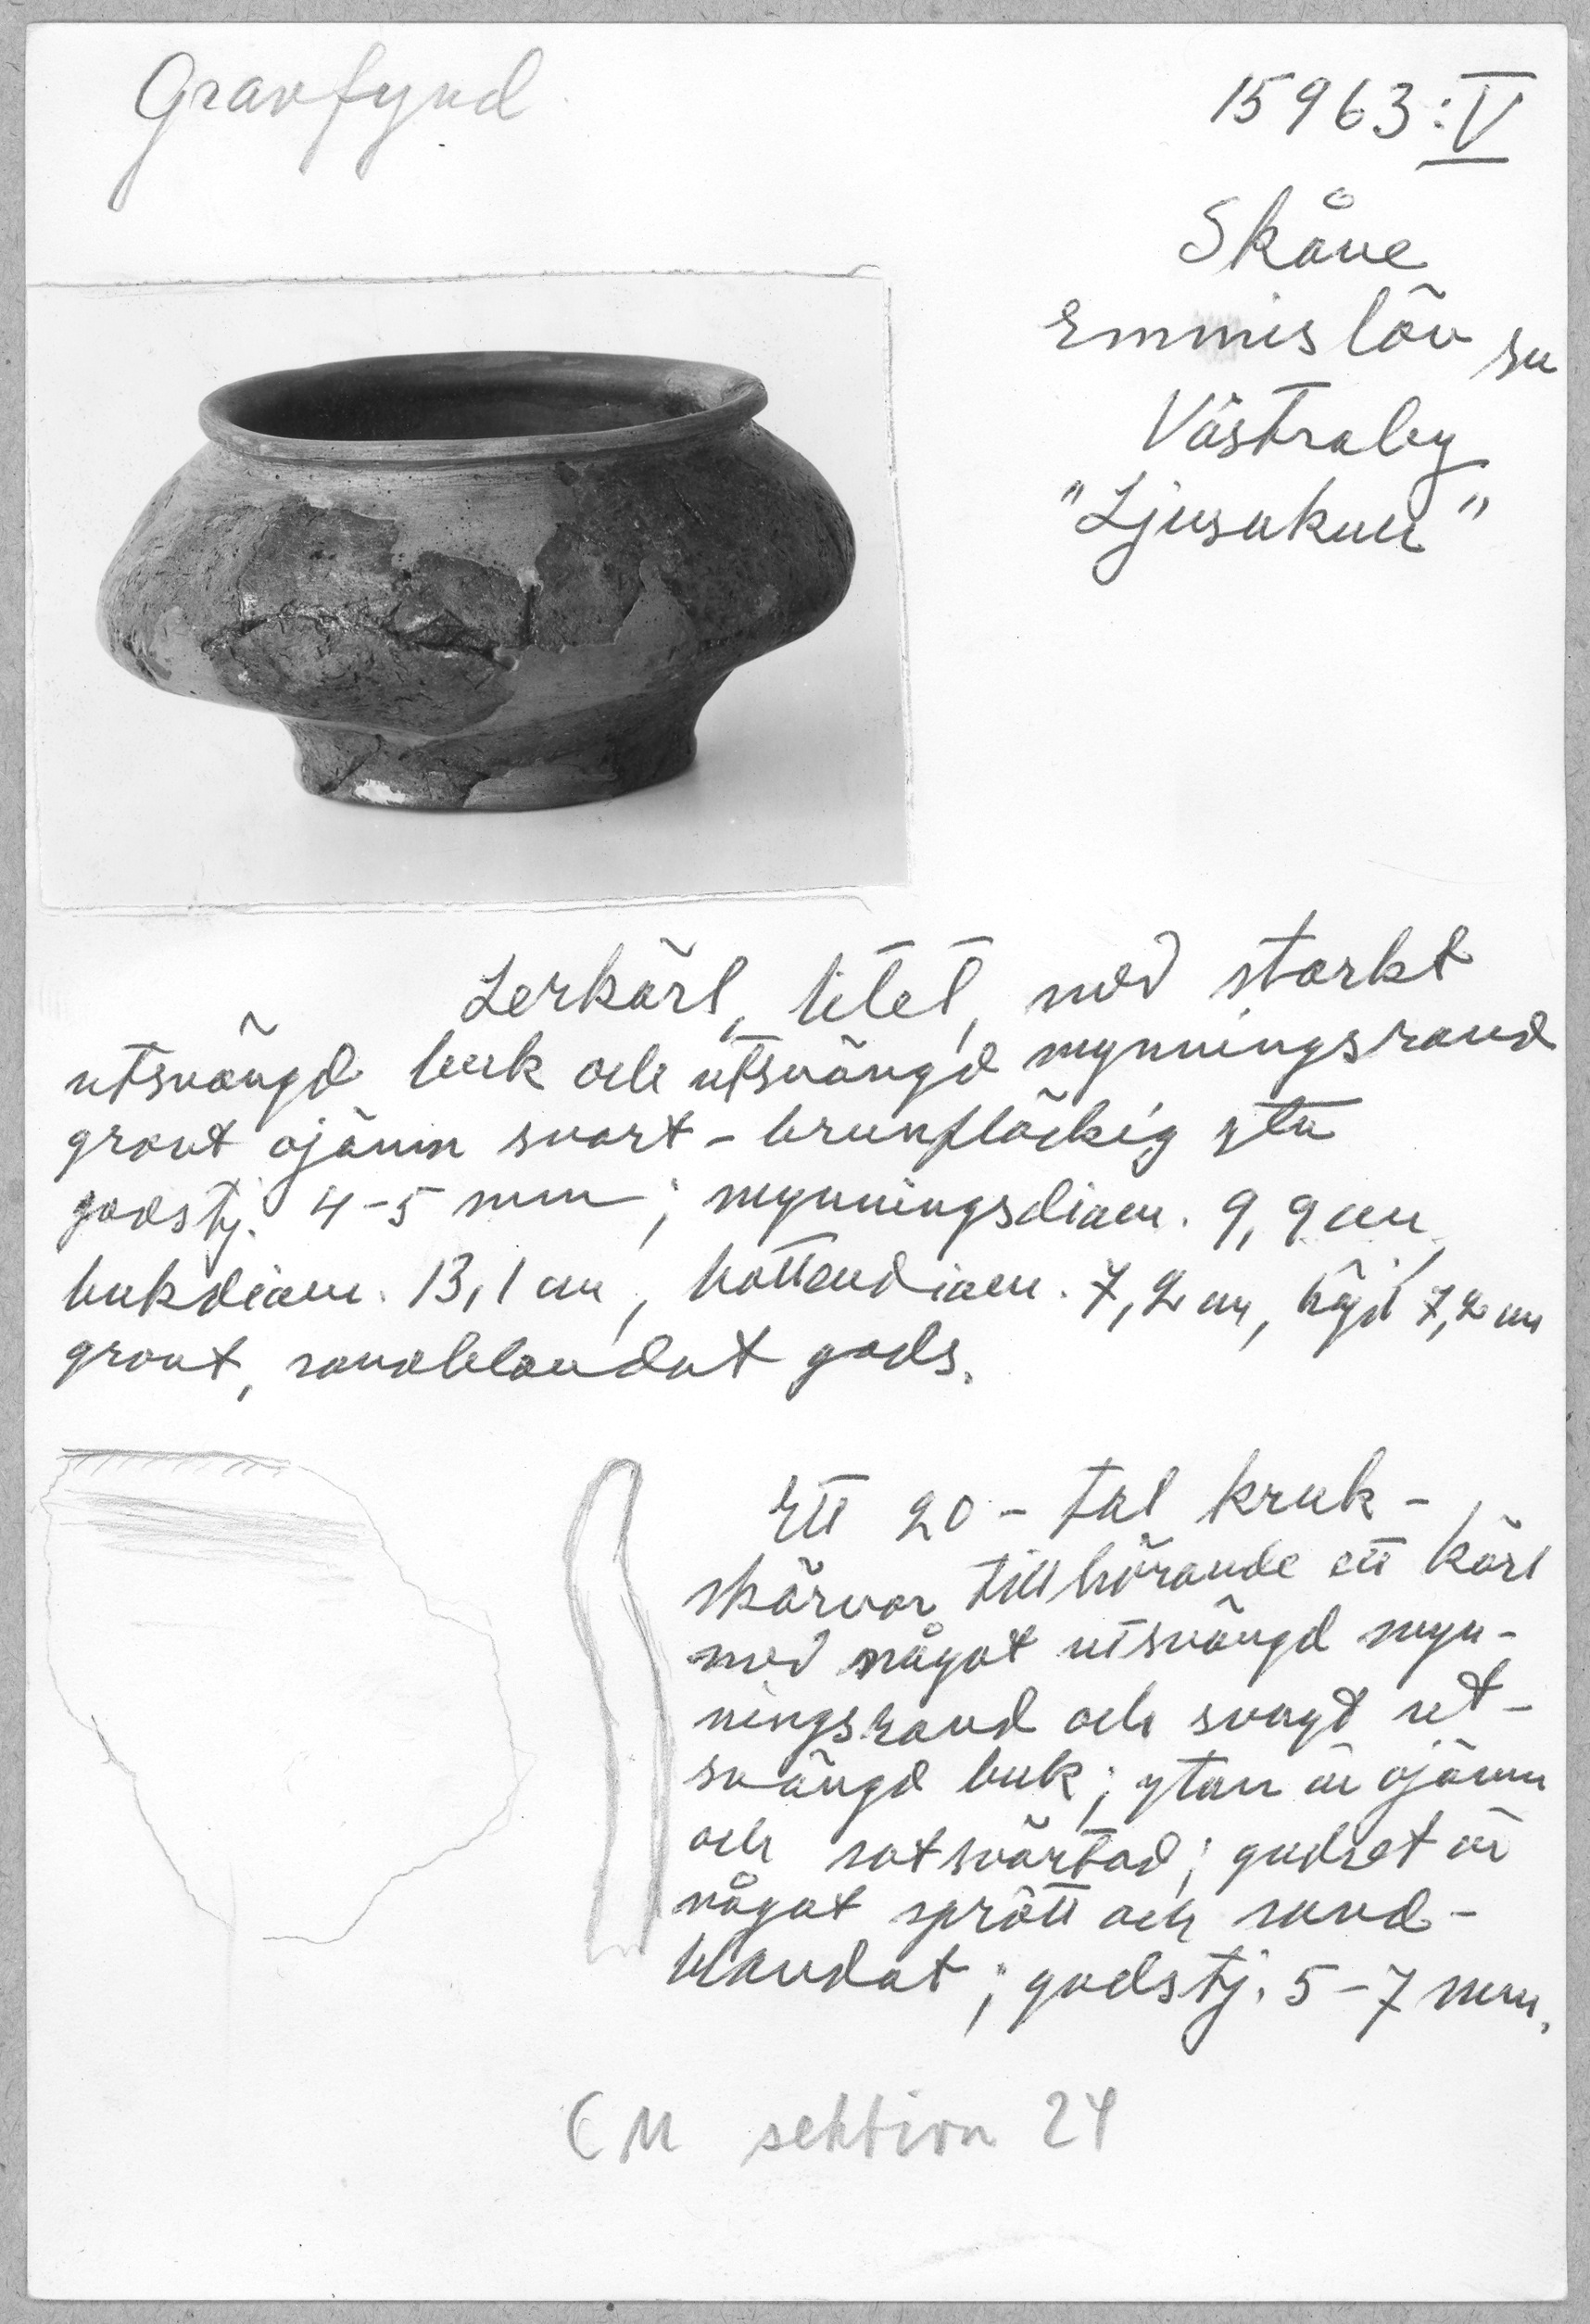 Gravfynd
15963:V
Skåne
Emmislöv sn
Västraby
"Ljusakull"
Lerkärl, litet, med starkt
utsvängd buk och utsvängd mynningsrand
grovt ojämn svart-brunfläckig yta
godstj. 4-5 mm; mynningsdiam. 9,9 cm,
bukdiam. 13,1 cm, bottendiam. 7,2 cm, höjd 7,2 cm
grovt, sandblandat gods.
Ett 20-tal kruk-
skärvor tillhörande ett kärl
med något utsvängd myn-
ningsrand och svagt ut-
svängd buk; ytan är ojämn
och sotsvärtad; godset är
något sprött och sand-
blandat; godstj. 5-7 mm.
CM sektion 24